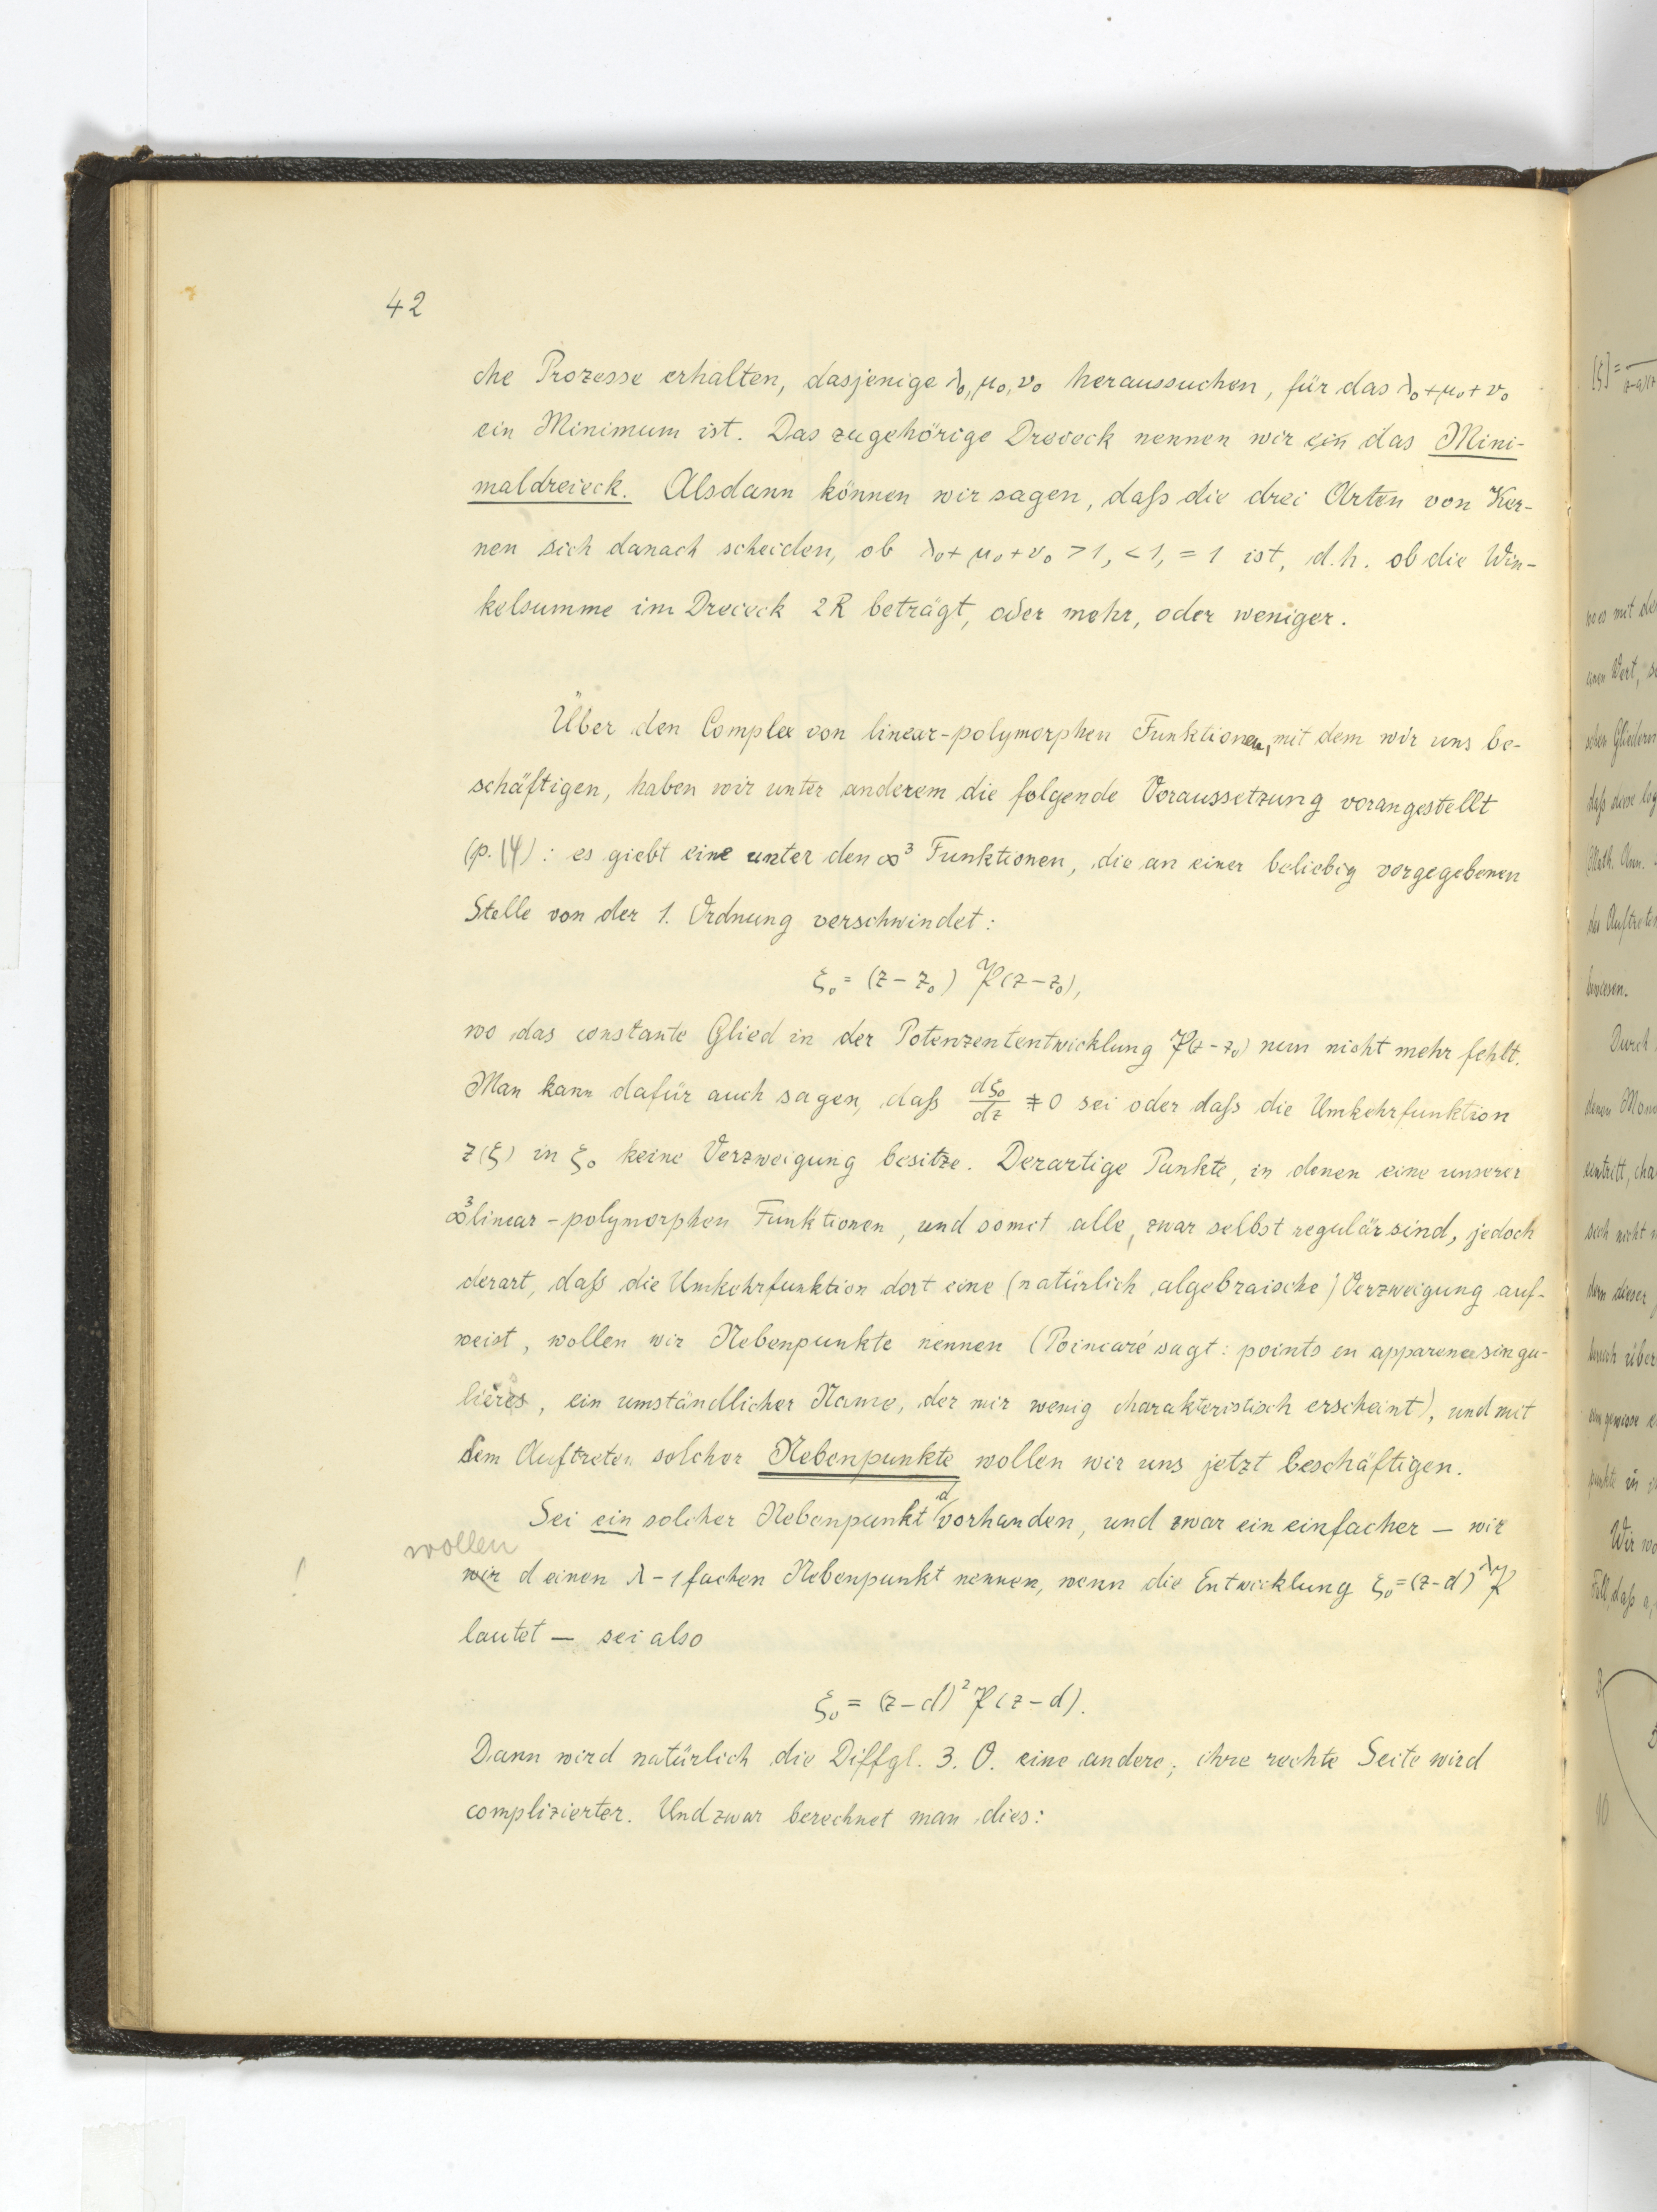 42
che Prozesse erhalten, dasjenige λ₀, μ₀, ν₀ heraussuchen, für das λ₀+μ₀+ν₀
ein Minimum ist. Das zugehörige Dreieck nennen wir ein das Mini-
maldreieck. Alsdann können wir sagen, daß die drei Arten von Ker-
nen sich danach scheiden, ob λ₀+μ₀+ν₀ >1, <1, =1 ist, d.h. ob die Win-
kelsumme im Dreieck 2R beträgt, oder mehr, oder weniger.
Über den Complex von linear-polymorphen Funktionen, mit dem wir uns be-
schäftigen, haben wir unter anderem die folgende Voraussetzung vorangestellt
(p. 14): es giebt eine unter den ∞³ Funktionen, die an einer beliebig vorgegebenen
Stelle von der 1. Ordnung verschwindet:
ξ₀ = (z−z₀) 𝔓(z−z₀),
wo das constante Glied in der Potenzententwicklung 𝔓(z−z₀) nun nicht mehr fehlt.
Man kann dafür auch sagen, daß dξ₀/dz ≠ 0 sei oder daß die Umkehrfunktion
z(ξ) in ξ₀ keine Verzweigung besitze. Derartige Punkte, in denen eine unserer
∞³ linear-polymorphen Funktionen, und somit alle, zwar selbst regulär sind, jedoch
derart, daß die Umkehrfunktion dort eine (natürlich algebraische) Verzweigung auf-
weist, wollen wir Nebenpunkte nennen (Poincaré sagt: points en apparence singu-
lières, ein umständlicher Name, der mir wenig charakteristisch erscheint), und mit
dem Auftreten solcher Nebenpunkte wollen wir uns jetzt beschäftigen.
Sei ein solcher Nebenpunkt d vorhanden, und zwar ein einfacher — wir
wollen
! wir d einen λ−1 fachen Nebenpunkt nennen, wenn die Entwicklung ξ₀=(z−d)^λ 𝔓
lautet — sei also
ξ₀ = (z−d)² 𝔓(z−d).
Dann wird natürlich die Diffgl. 3. O. eine andere; ihre rechte Seite wird
complizierter. Und zwar berechnet man dies: